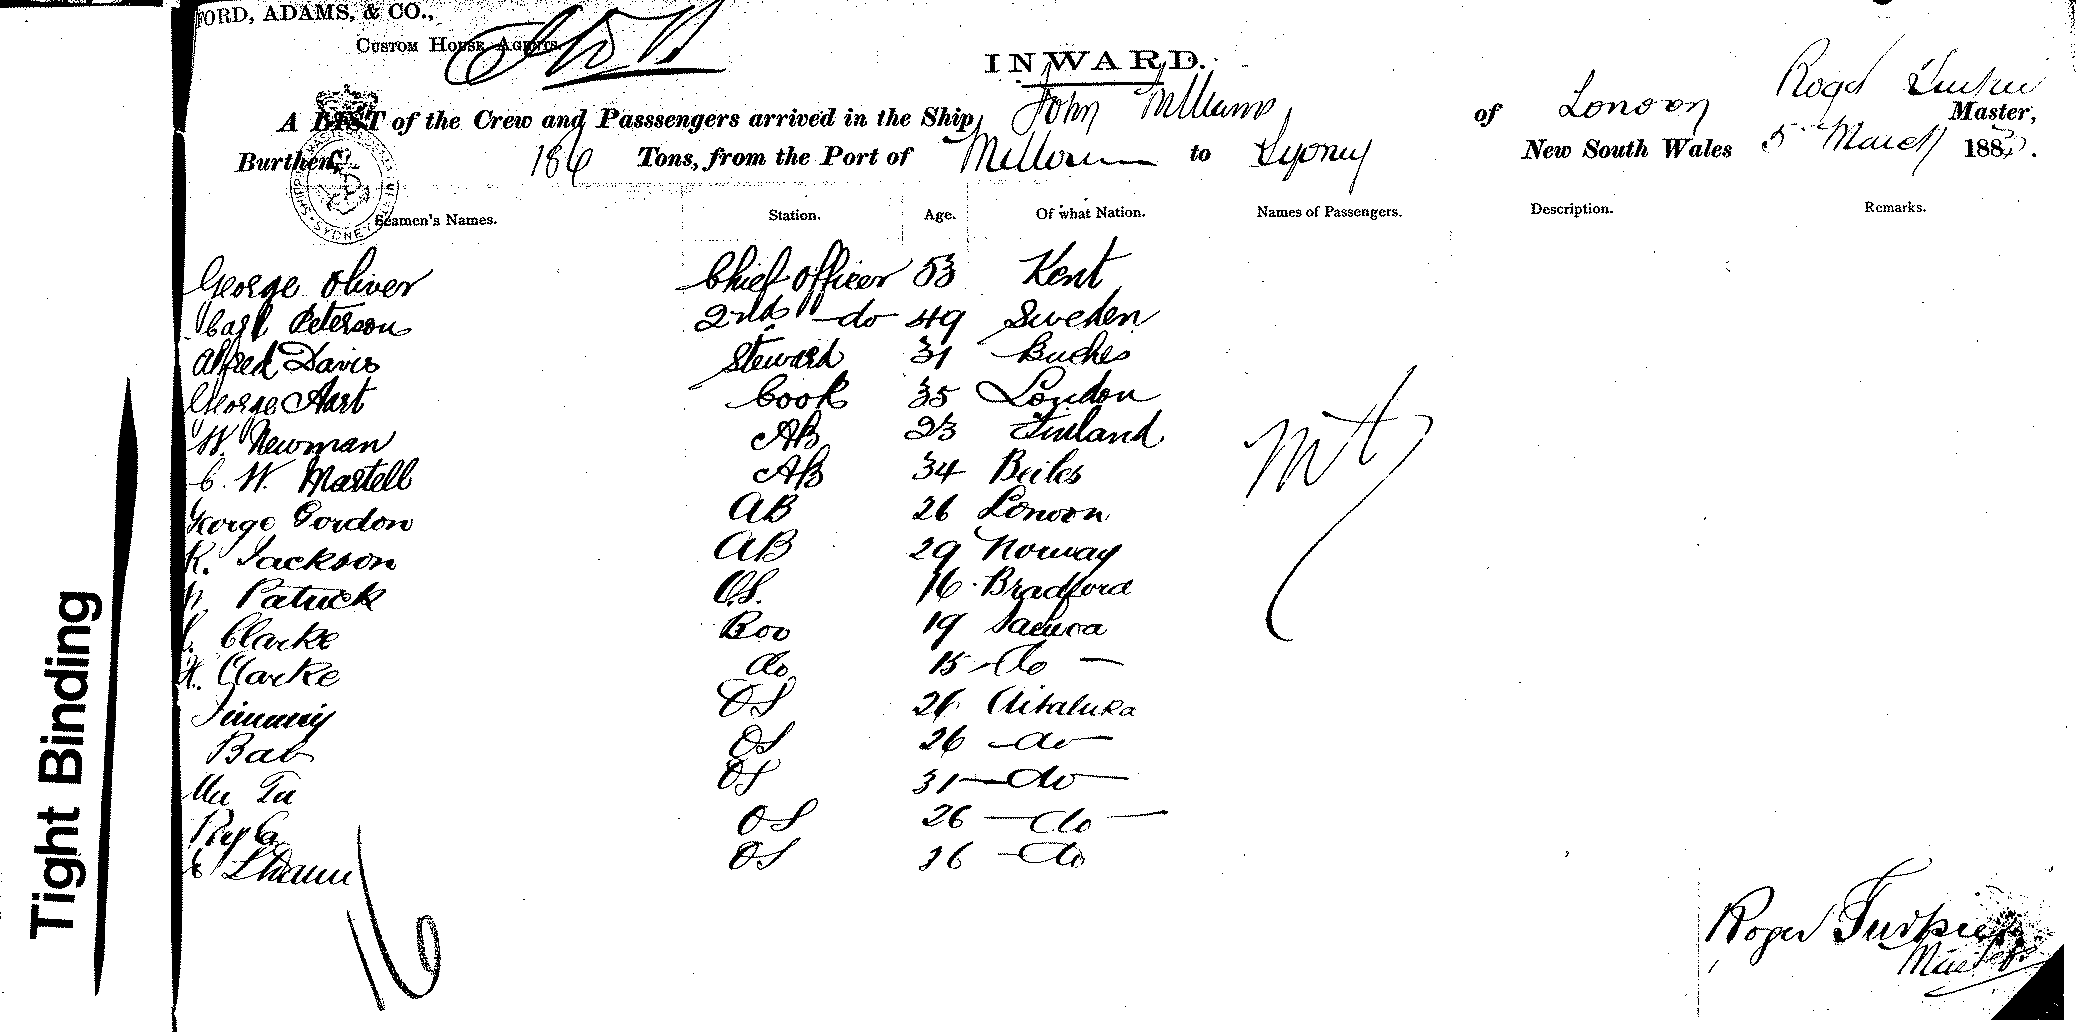 FORD, ADAMS, & CO.,
CUSTOM HOUSE AGENTS.
INWARD.
Roger Turpie
A LIST of the Crew and Passsengers arrived in the Ship John Williams, of London Master,
Burthen, 186 Tons, from the Port of Melbourne to Sydney New South Wales 5 March 188
Seamen's Names. Station. Age. Of what Nation. Names of Passengers. Description. Remarks.
George Oliver Chief Officer 53 Kent
Carl Peterson 2nd do 49 Sweden
Alfred Davis Steward 31
George Hart Cook 35 London
W. Newman AB 23 Finland
C. W. Martell AB 34
George Gordon AB 26 London
R. Jackson AB 29 Norway
Patrick O.S. 16 Bradford
Clarke Boy 19 Samoa
Clarke do 15 do
Jimmy OS 26
Bab OS 26 do
OS 31 do
OS 26 do
OS 26 do
16
Roger Turpie
Master
Tight Binding